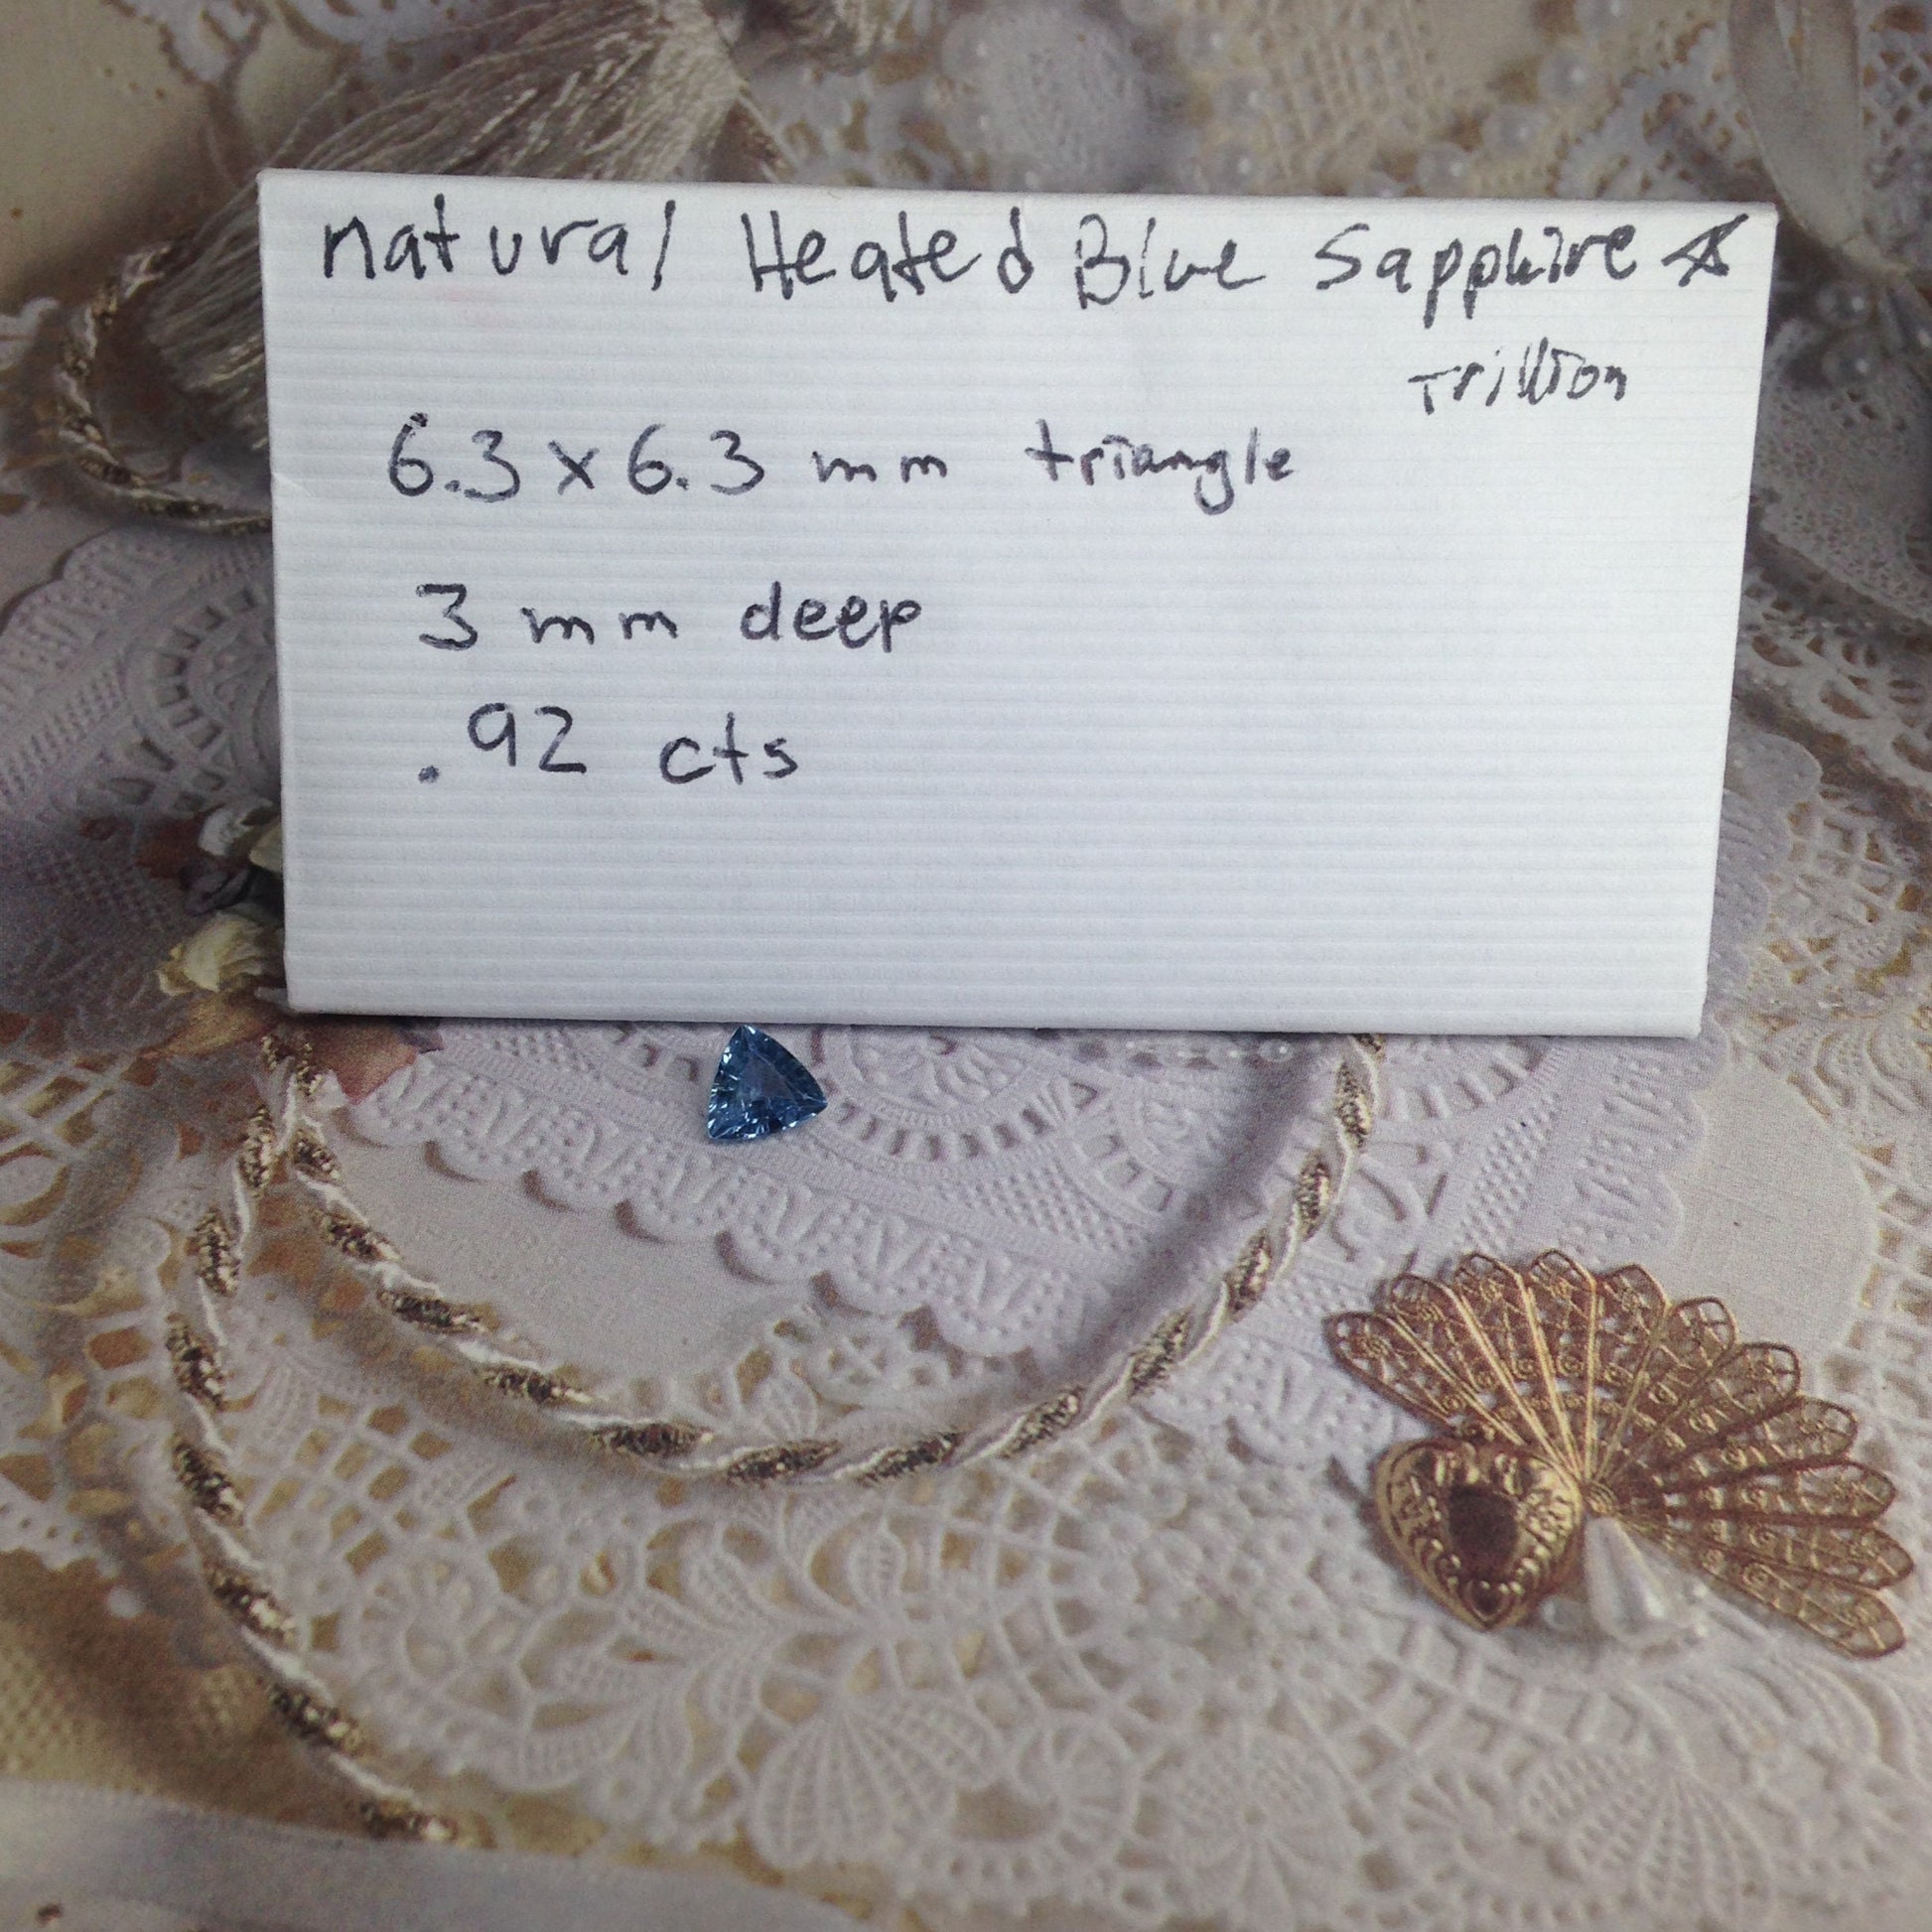 natural Heated Blue Sapphire
Trillion
6.3 x 6.3 mm triangle
3 mm deep
.92 cts